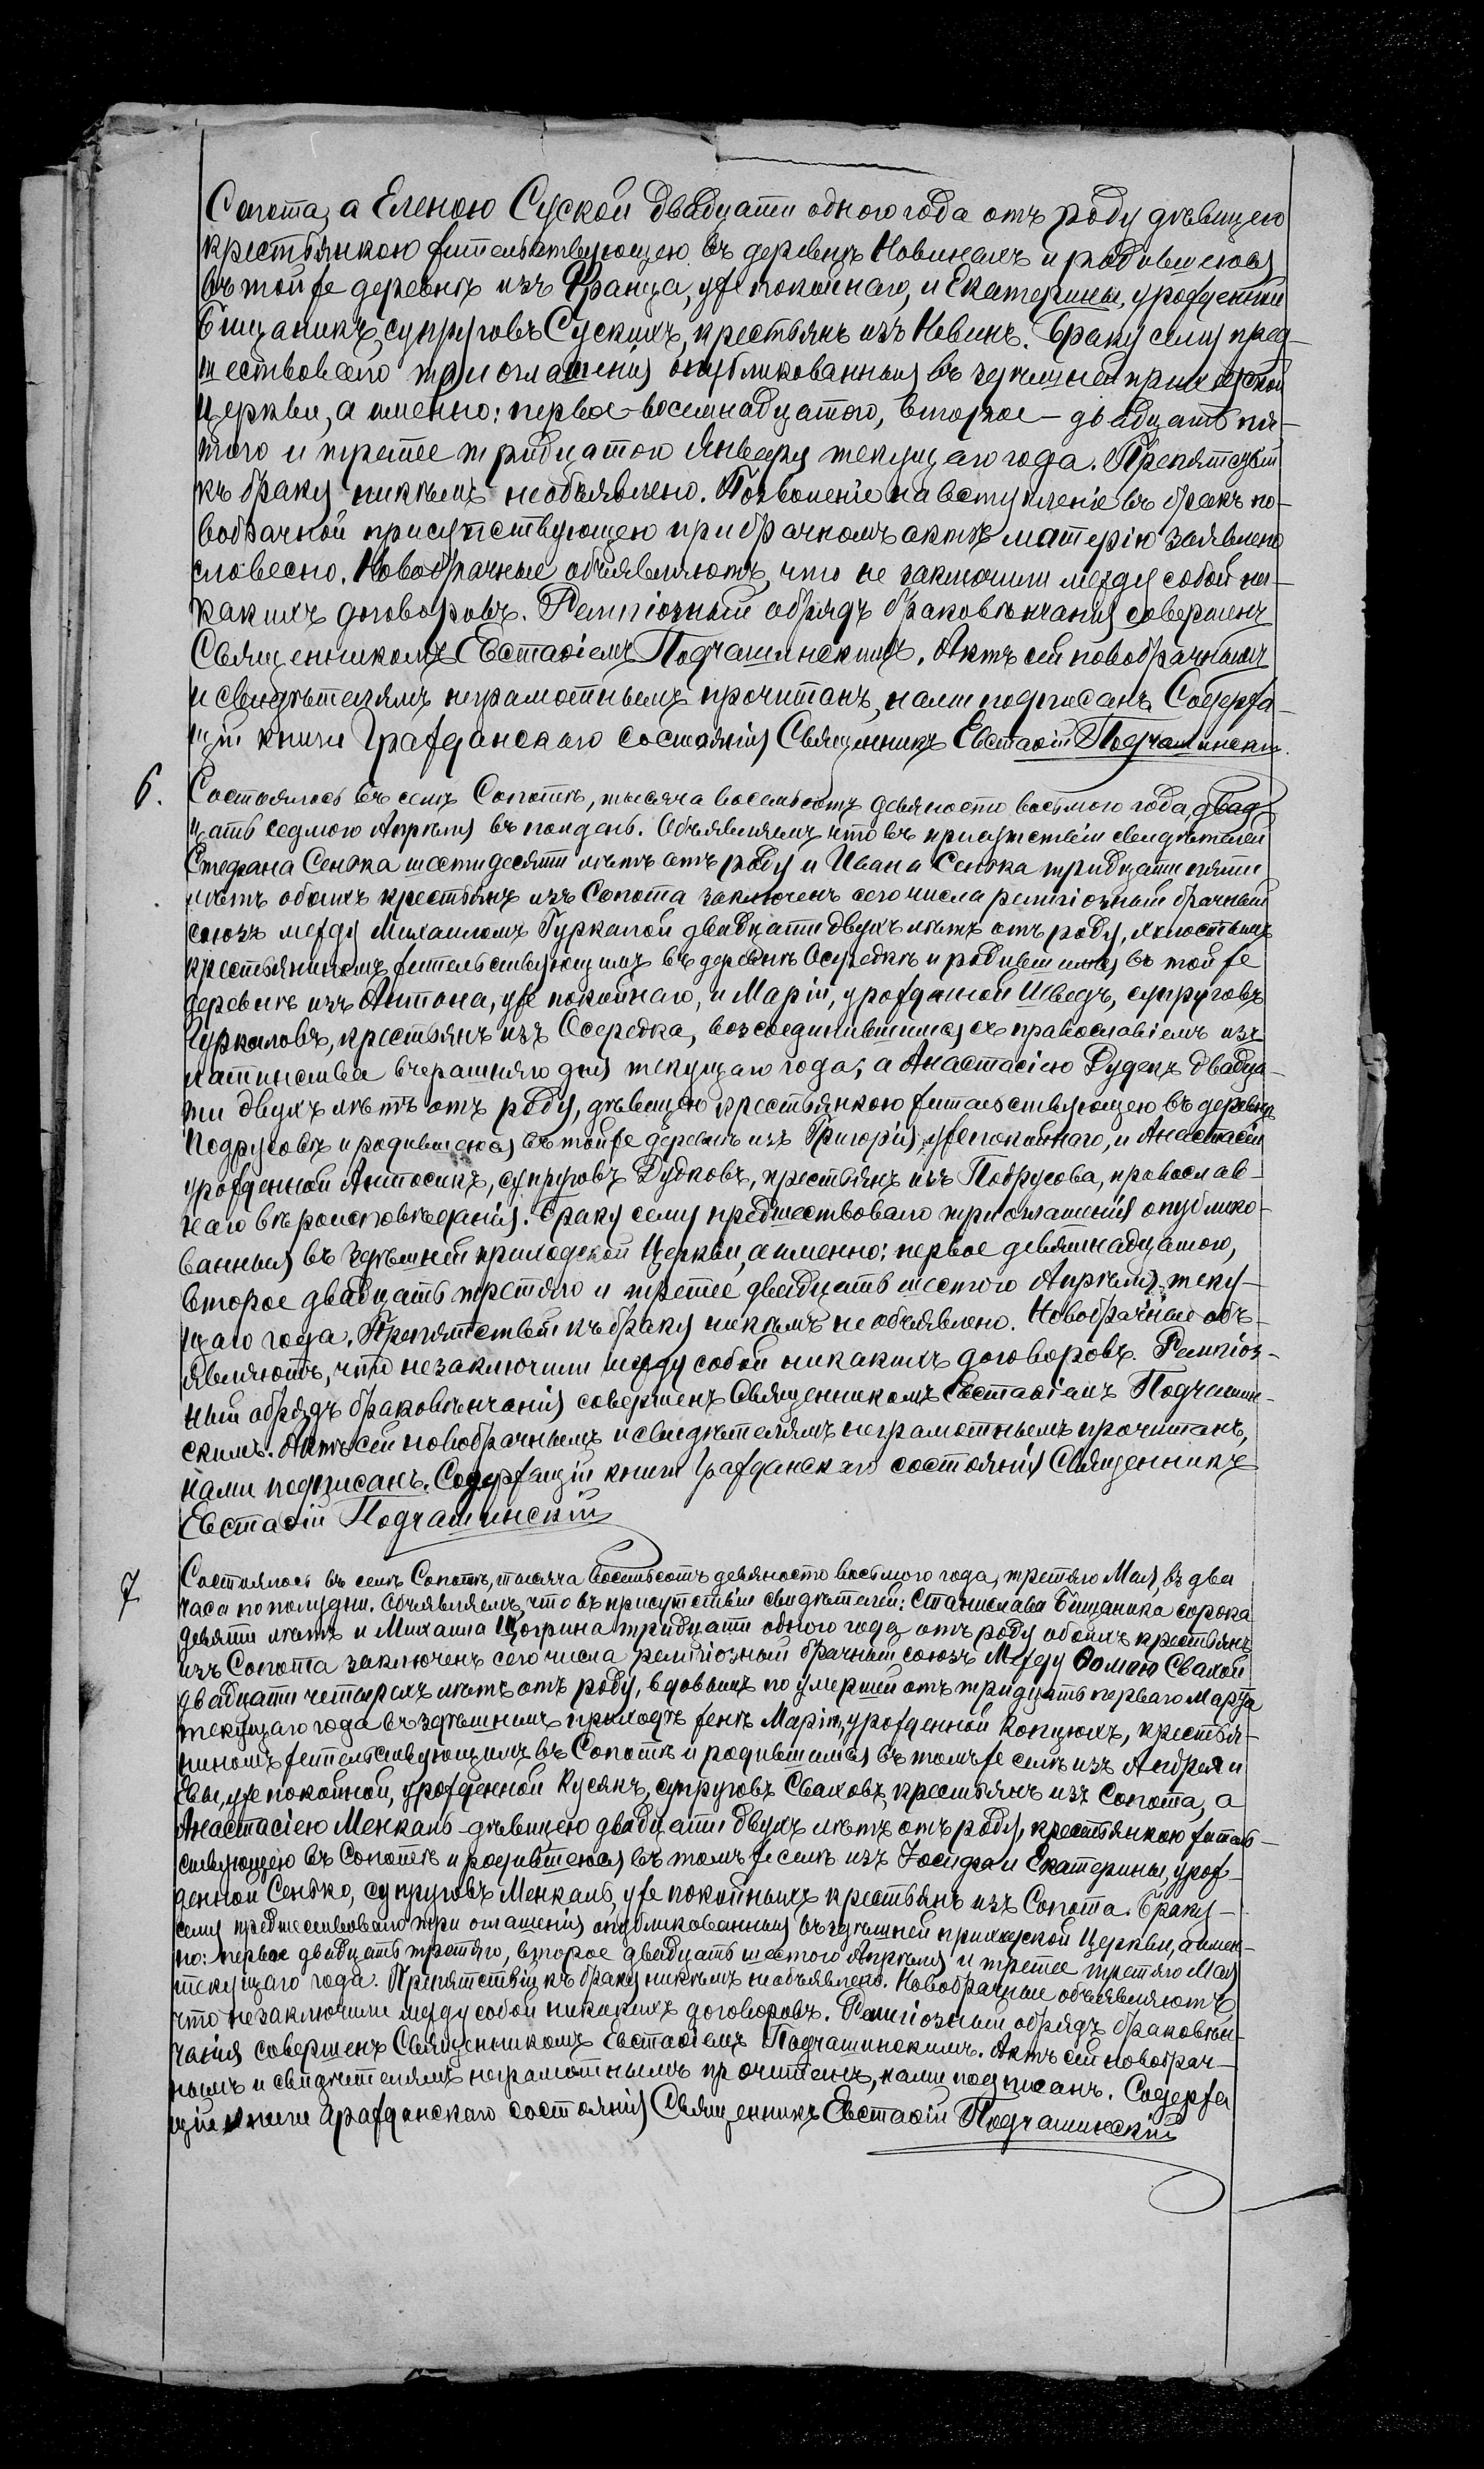 Сопота, а Еленою Суской двадцати одного года отъ роду дѣвицею
крестьянкою жительствующею въ деревнѣ Новинахъ и родившеюся
въ той же деревнѣ изъ Франца, уже покойнаго, и Екатерины, урожденной
Бищаникъ, супруговъ Сускихъ, крестьянъ изъ Новинъ. Браку сему пред-
шествовало три оглашенія опубликованныя въ здѣшней приходской
Церкви, а именно: первое – восемнадцатого, второе – двадцать пя-
того и третее тридцатого Января текущаго года. Препятствій
къ браку никѣмъ необъявлено. Позволеніе на вступленіе въ бракъ но-
вобрачной присутствующею при брачномъ актѣ матерію заявлено
словесно. Новобрачные объявляютъ, что не заключили между собой ни-
какихъ договоровъ. Религіозный обрядъ браковѣнчанія совершенъ
Священникомъ Евстафіемъ Подчашинскимъ. Актъ сей новобрачнымъ
и свидѣтелямъ неграмотнымъ прочитанъ, нами подписанъ. Содержа-
щій книги Гражданского состоянія Священникъ Евстафій Подчашински
6. Состоялось въ селѣ Сопотѣ, тысяча восемьсотъ девяносто восьмого года, двад-
цать седмого Апрѣля въ полдень. Объявляемъ что въ присутствіи свидѣтелей
Стефана Сенька шестидесяти лѣтъ отъ роду и Ивана Сенька тридцати пяти
лѣтъ обоихъ крестьянъ изъ Сопота заключенъ сего числа религіозный брачный
союзъ между Михаиломъ Гуркалой двадцати двухъ лѣтъ отъ роду, холостымъ
крестьяниномъ жительствующимъ въ деревнѣ Осередкѣ и родившимся въ той же
деревнѣ изъ Антона, уже покойнаго, и Маріи, урожданой Шведъ, супруговъ
Гуркаловъ, крестьянъ изъ Осередка, возсоединившимся съ православіемъ изъ
латинства вчерашняго дня текущаго года; а Анастасіею Дудекъ двадца-
ти двухъ лѣтъ отъ роду, дѣвицею крестьянкою жительствующею въ деревнѣ
Подрусовѣ и родившеюся въ той же деревнѣ изъ Григорія, уже покойнаго, и Анастасіи
урожденной Антосикъ, супруговъ Дудковъ, крестьянъ изъ Подрусова, православ-
наго вѣроисповѣданія. Браку сему предшествовало три оглашенія опублико-
ванныя въ здѣшней приходской Церкви, а именно: первое девятнадцатого,
второе двадцать третяго и третее двадцать шестого Апрѣля теку-
щаго года. Препятствій къ браку никѣмъ не объявлено. Новобрачные объ-
являютъ, что незаключили между собой никакихъ договоровъ. Религіоз-
ный обрядъ браковѣнчанія совершенъ Священникомъ Евстафіемъ Подчашин-
скимъ. Актъ сей новобрачнымъ и свидѣтелямъ неграмотнымъ прочитанъ,
нами подписанъ. Содержащій книги Гражданского состоянія Священникъ
Евстафій Подчашинскій
7 Состоялось въ селѣ Сопотѣ, тысяча восемьсотъ девяносто восьмого года, третяго Мая, въ два
часа пополудни. Объявляемъ, что въ присутствіи свидѣтелей: Станислава Бищаника сорока
девяти лѣтъ и Михаила тридцати одного года отъ роду обоихъ крестьянъ
изъ Сопота заключенъ сего числа религіозный брачный союзъ Между Ѳомою Свахой
двадцати четырехъ лѣтъ отъ роду, вдовымъ по умершей отъ тридцать перваго Марта
текущаго года въ здѣшнимъ приходѣ женѣ Маріи, урожденной Копцюхъ, крестья-
ниномъ жительствующимъ въ Сопотѣ и родившимся въ томъ же селѣ изъ Андрея и
Евы, уже покойной, урожденной Кусякъ, супруговъ Сваховъ, крестьянъ изъ Сопота, а
Анастасіею Менкаль – дѣвицею двадцати двухъ лѣтъ отъ роду, крестьянкою житель-
ствующею въ Сопотѣ и родившеюся въ томъ же селѣ изъ Іосифа и Екатерины, урож-
денной Сенько, супруговъ Менкаль, уже покойныхъ крестьянъ изъ Сопота. Браку –
сему предшествовало три оглашенія опубликованныя въ здѣшней приходской Церкви, а имен-
но: первое двадцать третяго, второе двадцать шестого Апрѣля и третее третяго Мая
текущаго года. Препятствій къ браку никѣмъ необъявлено. Новобрачные объявляютъ
что незаключили между собой никакихъ договоровъ. Религіозный обрядъ браковѣн-
чанія совершенъ Священникомъ Евстафіемъ Подчашинскимъ. Актъ сей новобрач-
нымъ и свидѣтелямъ неграмотнымъ прочитанъ, нами подписанъ. Содержа
щій книги Гражданскаго состоянія Священникъ Евстафій Подчашинскій